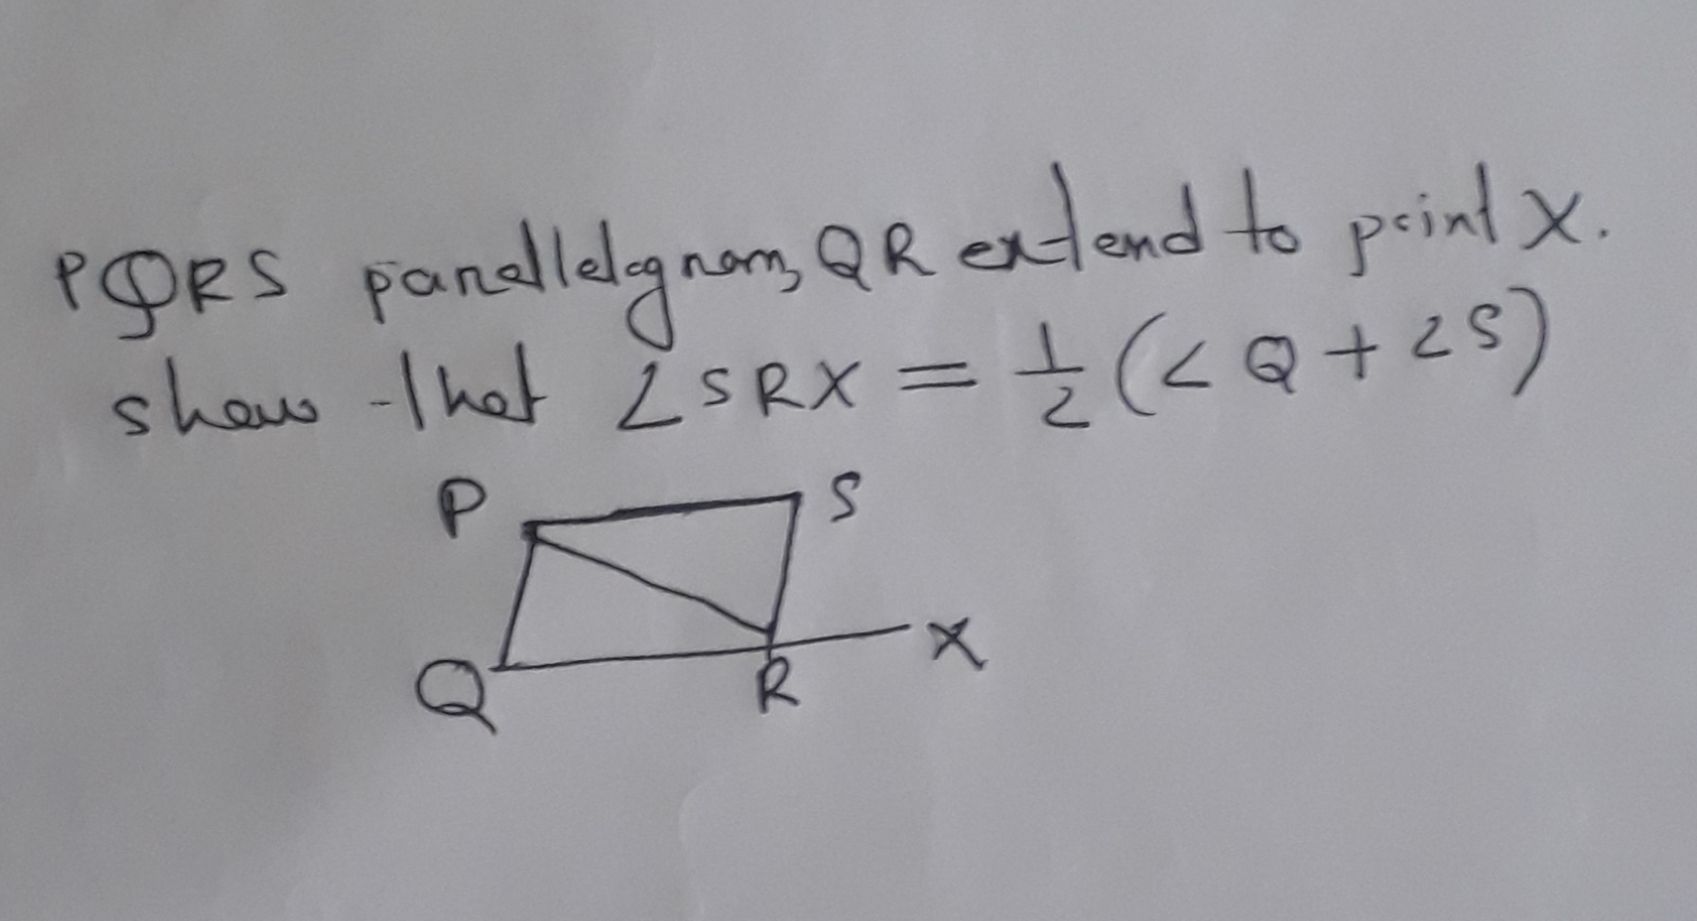 PQRS parallelogram, QR extend to point X.
show that ∠SRX = 1/2 (<Q + ∠S)
P S
Q R X